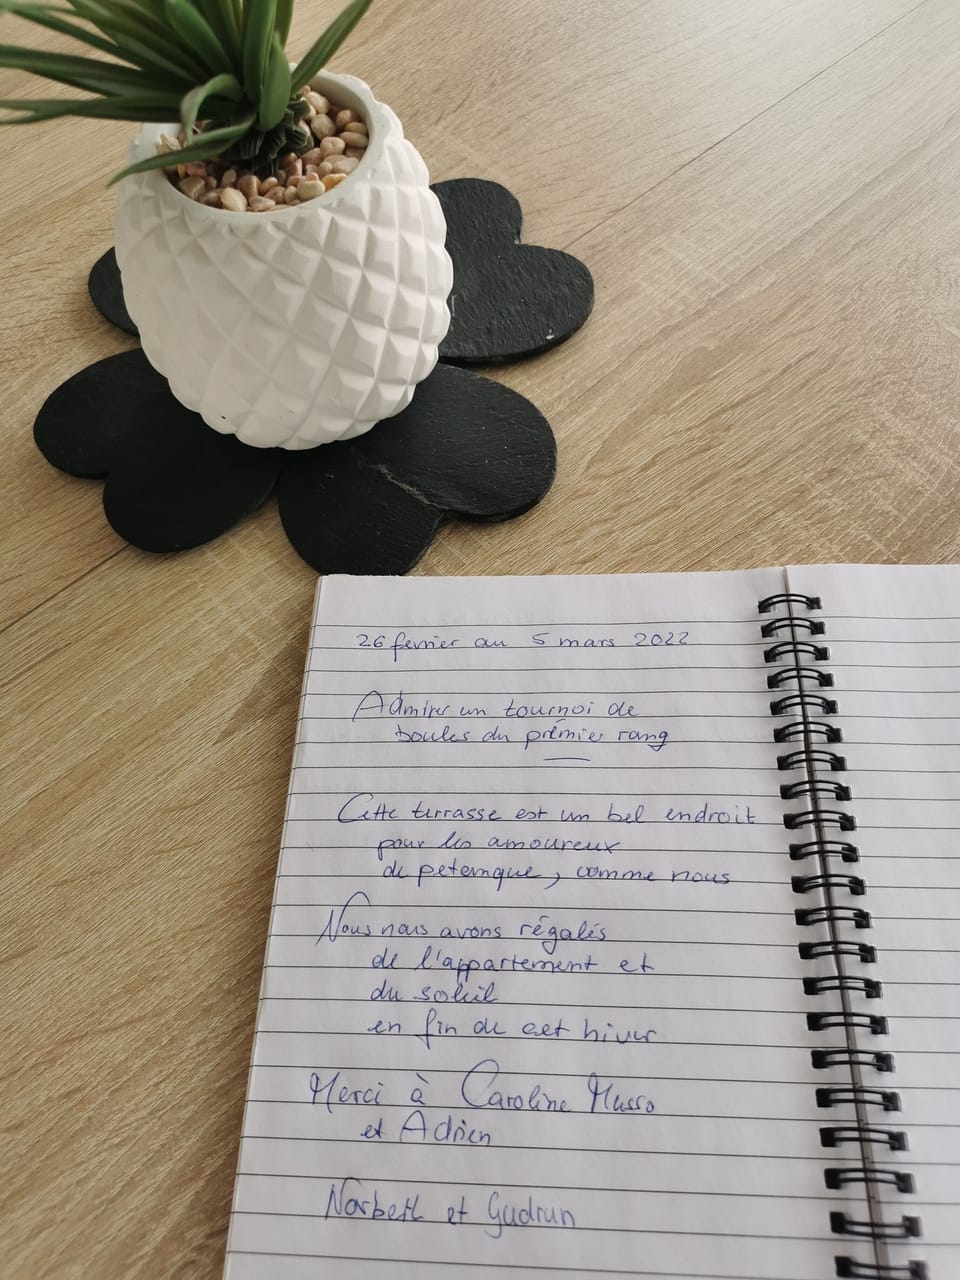 26 fevrier au 5 mars 2022
Admirer un tournoi de
boules du prémier rang
Cette terrasse est un bel endroit
pour les amoureux
de petemque, comme nous
Nous nous avons régalés
de l'appartement et
du soleil
en fin de cet hiver
Merci à Caroline Musso
et Adrien
et Gudrun